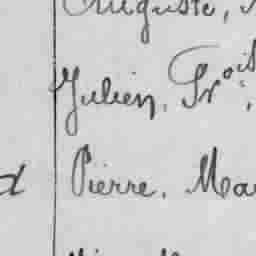 Auguste,
Julien, Frois,
d Pierre, Ma